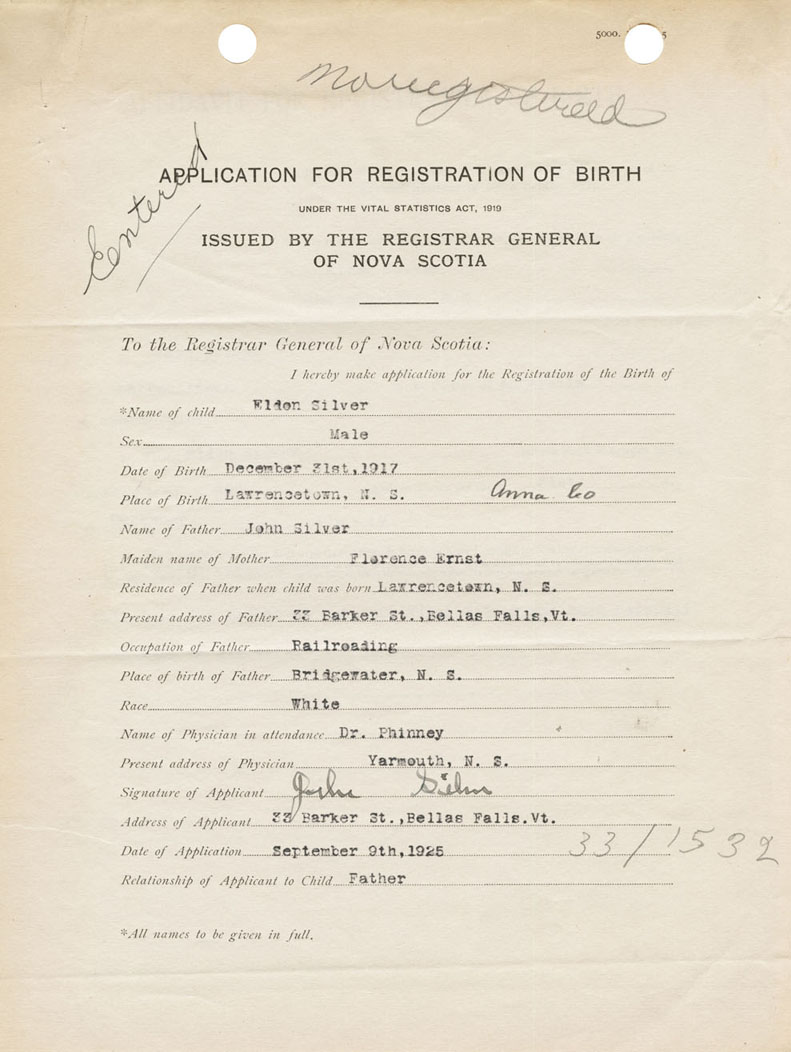 5000. 5
No registered
Entered
APPLICATION FOR REGISTRATION OF BIRTH
UNDER THE VITAL STATISTICS ACT, 1919
ISSUED BY THE REGISTRAR GENERAL
OF NOVA SCOTIA
To the Registrar General of Nova Scotia:
I hereby make application for the Registration of the Birth of
*Name of child Eldon Silver
Sex Male
Date of Birth December 31st,1917
Place of Birth Lawrencetown, N. S. Anna Co
Name of Father John Silver
Maiden name of Mother Florence Ernst
Residence of Father when child was born Lawrencetown, N. S.
Present address of Father 33 Barker St.,Bellas Falls,Vt.
Occupation of Father Railroading
Place of birth of Father Bridgewater, N. S.
Race White
Name of Physician in attendance Dr. Phinney
Present address of Physician Yarmouth, N. S.
Signature of Applicant John Silver
Address of Applicant 33 Barker St.,Bellas Falls.Vt.
Date of Application September 9th,1925
33/1532
Relationship of Applicant to Child Father
*All names to be given in full.